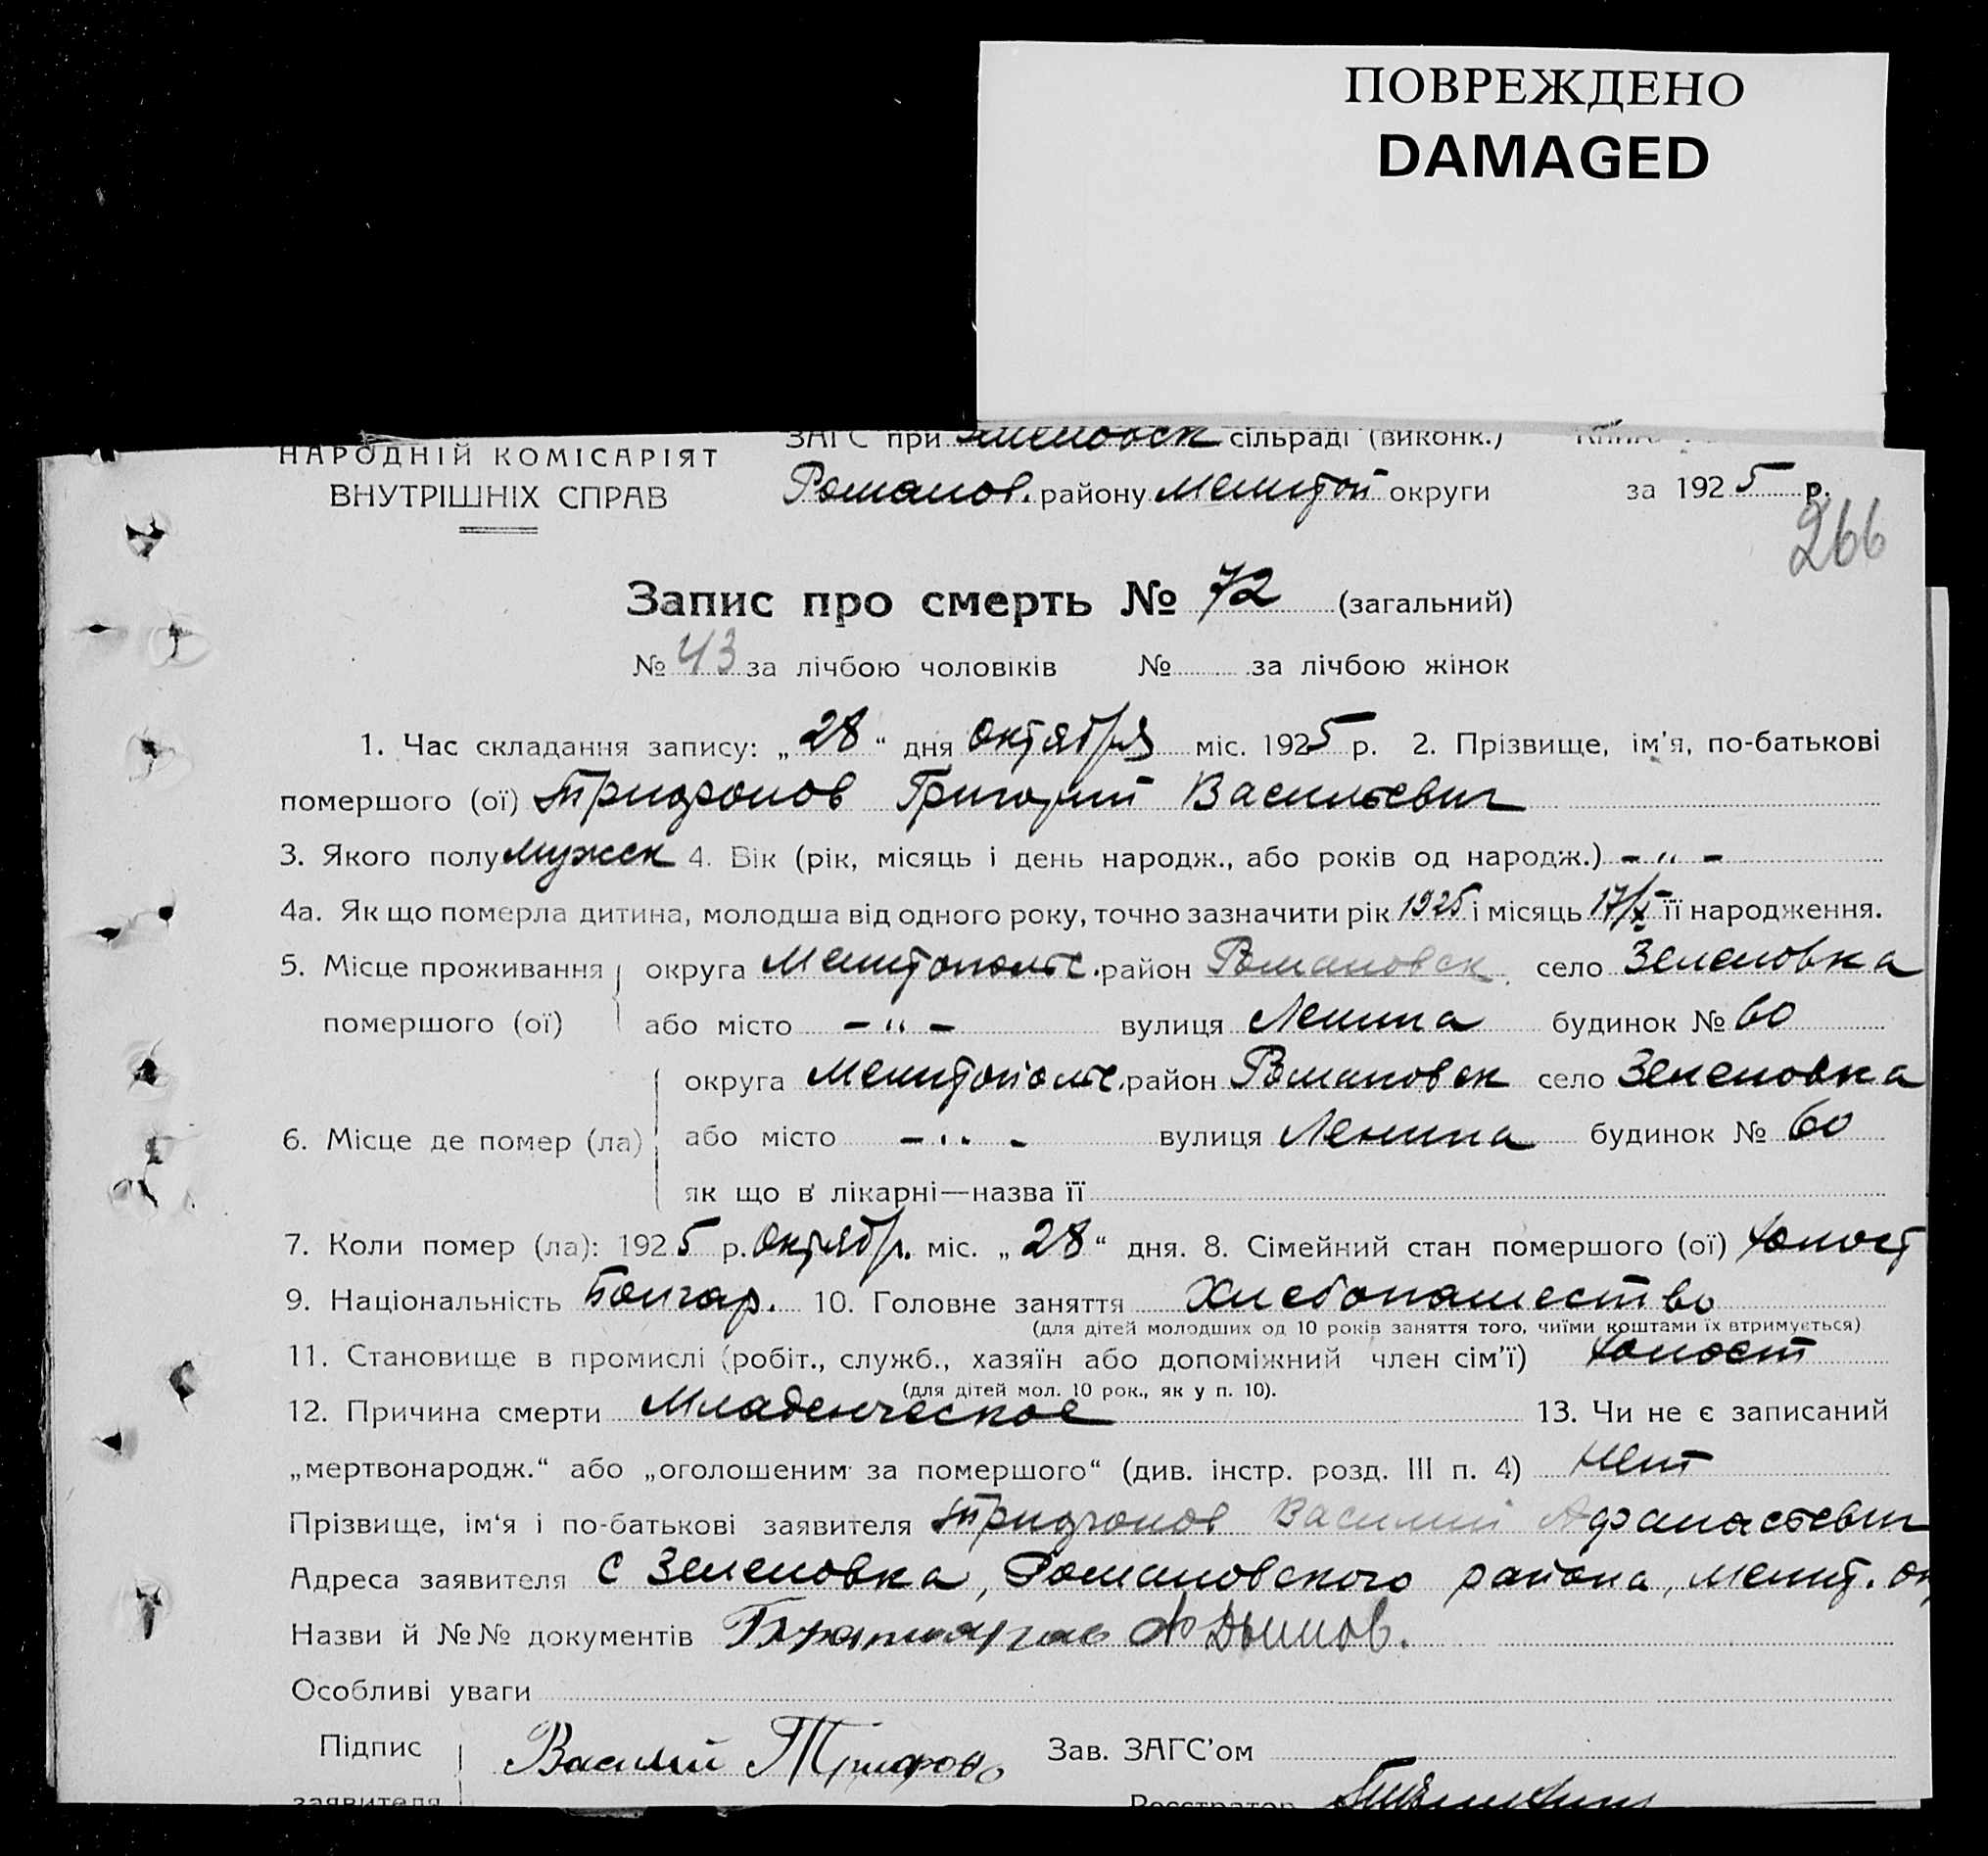 ПОВРЕЖДЕНО
DAMAGED
НАРОДНІЙ КОМІСАРІЯТ
ВНУТРІШНІХ СПРАВ
ЗАГС при Зеленовск сільраді (виконк.)
Романов. району Мелитоп округи
за 1925 р.
266
Запис про смерть № 72 (загальний)
№ 43 за лічбою чоловіків № за лічбою жінок
1. Час складання запису: „28“ дня октября міс. 1925 р. 2. Прізвище, ім'я, по-батькові
помершого (ої) Трифонов Григорий Васильевич
3. Якого полу мужск 4. Вік (рік, місяць і день народж., або років од народж.) - " -
4а. Як що померла дитина, молодша від одного року, точно зазначити рік 1925 і місяць 17/X її народження.
5. Місце проживання округа Мелитопольс. район Романовск. село Зеленовка
помершого (ої) або місто - " - вулиця Ленина будинок № 60
округа Мелитопольс. район Романовск село Зеленовка
6. Місце де помер (ла) або місто - " - вулиця Ленина будинок № 60
як що в лікарні—назва її
7. Коли помер (ла): 1925 р. Октябр. міс. „28“ дня. 8. Сімейний стан помершого (ої) холост
9. Національність Болгар. 10. Головне заняття Хлебопашество
(для дітей молодших од 10 років заняття того, чиїми коштами їх втримується)
11. Становище в промислі (робіт., служб., хазяїн або допоміжний член сім'ї) холост
(для дітей мол. 10 рок., як у п. 10).
12. Причина смерти Младенческое 13. Чи не є записаний
„мертвонародж.“ або „оголошеним за помершого“ (див. інстр. розд. III п. 4) нет
Прізвище, ім'я і по-батькові заявителя Трифонов Василий Афанасьевич
Адреса заявителя С Зеленовка, Романовского района, Мелит. ок
Назви й №№ документів
Особливі уваги
Підпис Василий Трифонов Зав. ЗАГС'ом
заявителя Реєстратор